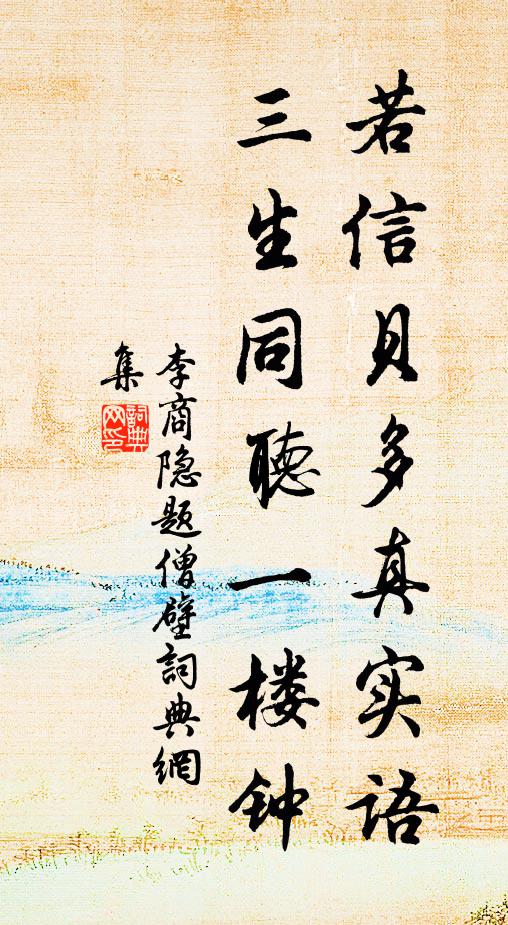 若信贝多真实语
三生同聴一楼钟
李商隐题僧壁詞典網
集
詞典
网印